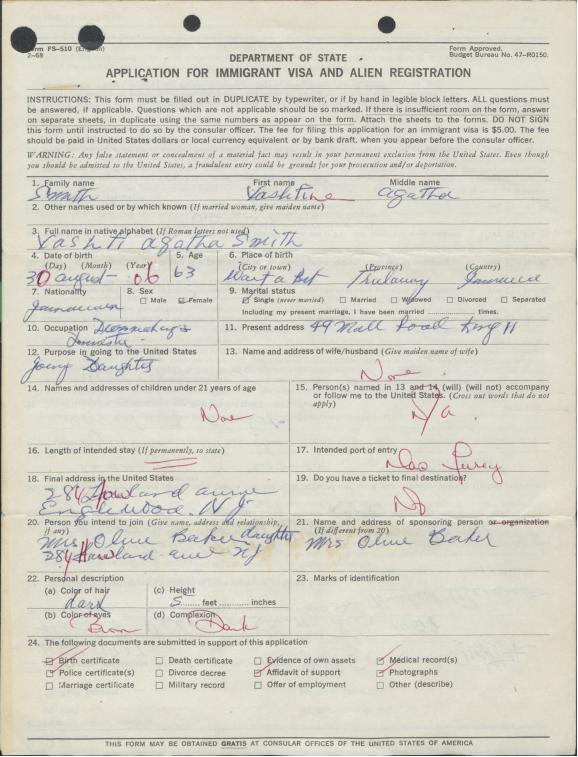 Form FS-510 (English)
2-68
Form Approved.
Budget Bureau No. 47-R0150.
DEPARTMENT OF STATE
APPLICATION FOR IMMIGRANT VISA AND ALIEN REGISTRATION
INSTRUCTIONS: This form must be filled out in DUPLICATE by typewriter, or if by hand in legible block letters. ALL questions must
be answered, if applicable. Questions which are not applicable should be so marked. If there is insufficient room on the form, answer
on separate sheets, in duplicate using the same numbers as appear on the form. Attach the sheets to the forms. DO NOT SIGN
this form until instructed to do so by the consular officer. The fee for filing this application for an immigrant visa is $5.00. The fee
should be paid in United States dollars or local currency equivalent or by bank draft, when you appear before the consular officer.
WARNING: Any false statement or concealment of a material fact may result in your permanent exclusion from the United States. Even though
you should be admitted to the United States, a fraudulent entry could be grounds for your prosecution and/or deportation.
1. Family name First name Middle name
Smith Vashti Agatha
2. Other names used or by which known (If married woman, give maiden name)
3. Full name in native alphabet (If Roman letters not used)
Vashti agatha Smith
4. Date of birth 5. Age 6. Place of birth
(Day) (Month) (Year) (City or town) (Province) (Country)
30 august - 06 63 Trelawny Jamaica
7. Nationality 8. Sex 9. Marital status
Jamaican Male Female Single (never married) Married Widowed Divorced Separated
Including my present marriage, I have been married ............ times.
10. Occupation Dressmaking & Domestic 11. Present address 49 Mall Road King 11
12. Purpose in going to the United States 13. Name and address of wife/husband (Give maiden name of wife)
Joing Daughter None
14. Names and addresses of children under 21 years of age 15. Person(s) named in 13 and 14 (will) (will not) accompany
or follow me to the United States. (Cross out words that do not
apply)
None N/a
16. Length of intended stay (If permanently, so state) 17. Intended port of entry
Jersey
18. Final address in the United States 19. Do you have a ticket to final destination?
284 Howland avenue No
Englewood. N J.
20. Person you intend to join (Give name, address and relationship, if any) 21. Name and address of sponsoring person or organization
(If different from 20)
Mrs Olive Baker daughter Mrs Olive Baker
284 Howland ave NJ
22. Personal description 23. Marks of identification
(a) Color of hair (c) Height
dark 5 feet ............ inches
(b) Color of eyes (d) Complexion
Dark
24. The following documents are submitted in support of this application
Birth certificate Death certificate Evidence of own assets Medical record(s)
Police certificate(s) Divorce decree Affidavit of support Photographs
Marriage certificate Military record Offer of employment Other (describe)
THIS FORM MAY BE OBTAINED GRATIS AT CONSULAR OFFICES OF THE UNITED STATES OF AMERICA